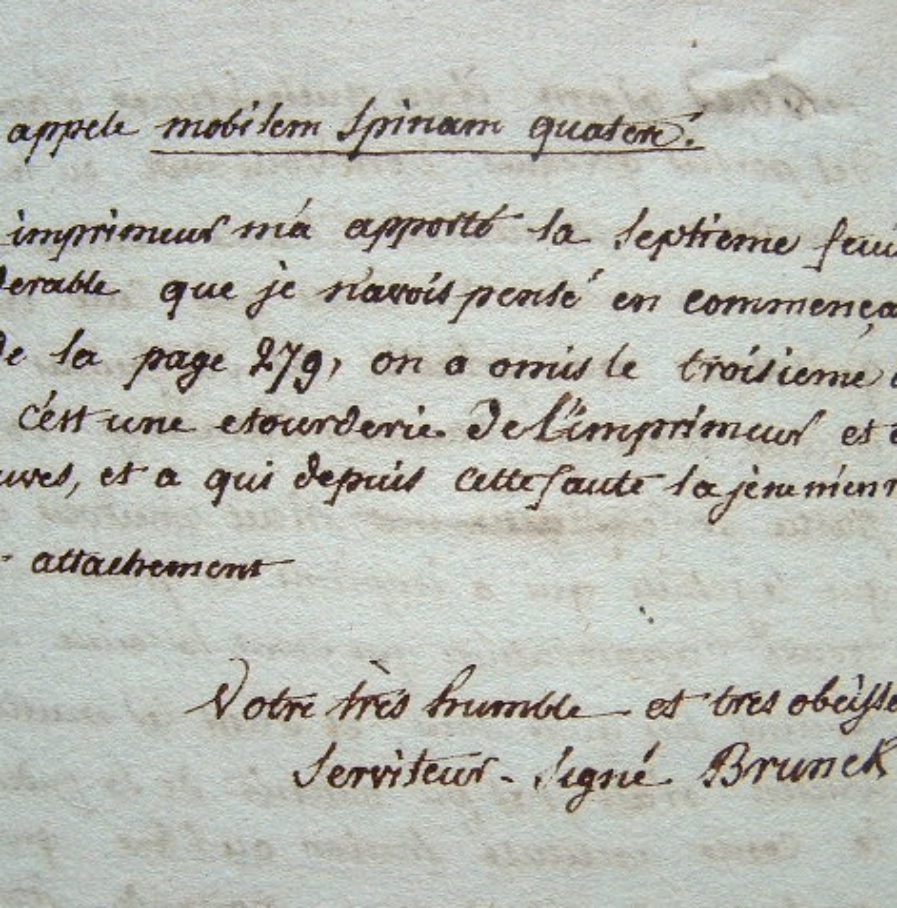 appele mobilem Spinam quatere.
imprimeur m'a apporté la Septieme feui
derable que je n'avois pensé en commença
de la page 279, on a omis le troisiéme
c'est une etourderie de L'imprimeur et
uves, et a qui depuis cette faute la
attachement
Votre très humble et tres obéisse
Serviteur - Signé Brunck